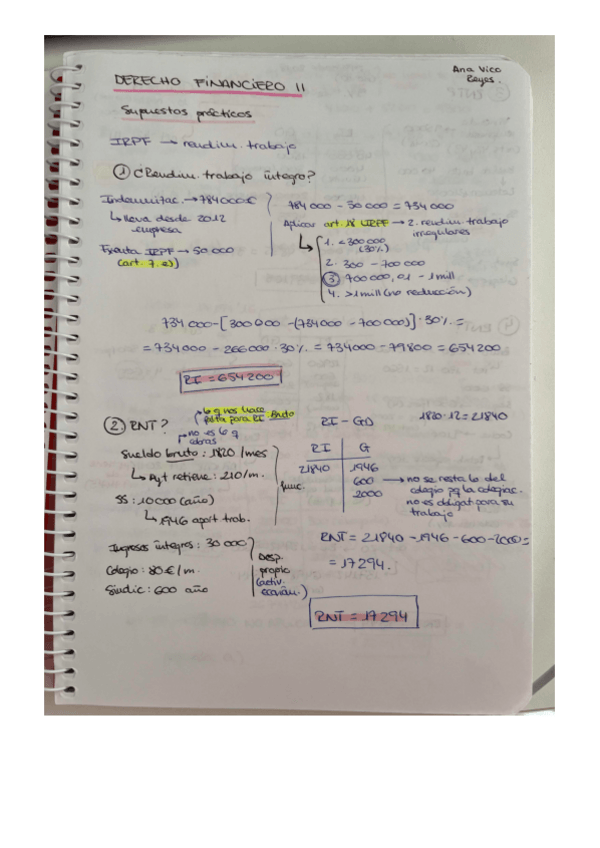 Ana Vico
Reyes.
DERECHO FINANCIERO II
Supuestos prácticos
IRPF → rendim. trabajo
① ¿Rendim. trabajo íntegro?
Indemnizac. → 784000€
↳ lleva desde 2012
empresa
Exenta IRPF → 50 000
(art. 7. e)
784 000 - 50 000 = 734 000
Aplicar art. 18 LIRPF → 2. rendim. trabajo
irregulares
↳ 1. <300 000
(30%)
2. 300 - 700 000
③ 700 000,01 - 1 mill
4. >1 mill (no reducción)
734 000 - [300 000 - (734 000 - 700 000)] · 30% =
= 734 000 - 266 000 · 30% = 734 000 - 79 800 = 654 200
RI = 654 200
② RNT?
lo q nos hace
falta para RI: Bruto
no es lo q
cobras
Sueldo bruto: 1820 /mes
↳ Ayt retiene: 210/m.
SS: 10 000 (año)
↳ 1946 aport trab.
func.
Ingresos íntegros: 30 000
Colegio: 80 €/m.
Sindic: 600 año
Desp.
propio
(activ.
económ.)
RI - GD
1820 · 12 = 21840
RI G
21840 1946
600
2000
→ no se resta lo del
colegio pq la colegiac.
no es obligat para su
trabajo
RNT = 21840 - 1946 - 600 - 2000 =
= 17 294.
RNT = 17 294